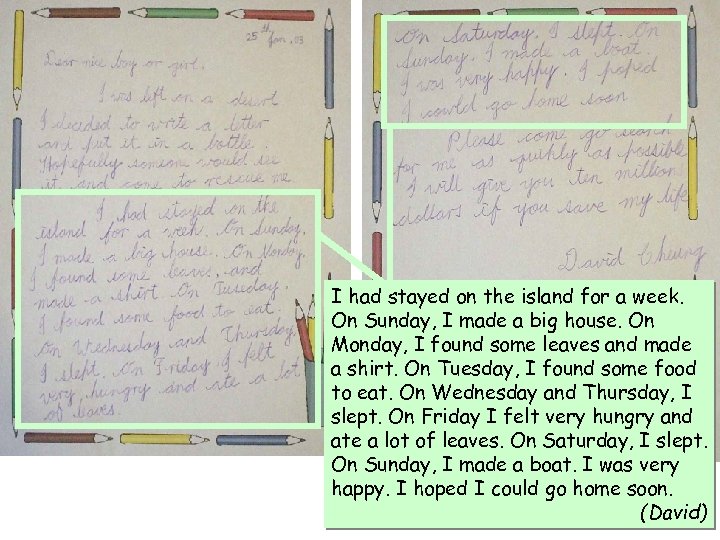 25th Jan, 03
Dear nice boy or girl.
I was left on a desert
I decided to write a letter
and put it in a bottle.
Hopefully someone would see
it and come to rescue me
I had stayed on the
island for a week. On Sunday.
I made a big house. On Monday,
I found some leaves, and
made a shirt. On Tuesday.
I found some food to eat.
On Wednesday and Thursday
I slept. On Friday I felt
very hungry and ate a lot
of leaves.
On Saturday, I slept. On
Sunday. I made a boat.
I was very happy. I hoped
I could go home soon
Please come go search
for me as quickly as possible
I will give you ten million
dollars if you save my life
David Cheung
I had stayed on the island for a week.
On Sunday, I made a big house. On
Monday, I found some leaves and made
a shirt. On Tuesday, I found some food
to eat. On Wednesday and Thursday, I
slept. On Friday I felt very hungry and
ate a lot of leaves. On Saturday, I slept.
On Sunday, I made a boat. I was very
happy. I hoped I could go home soon.
(David)